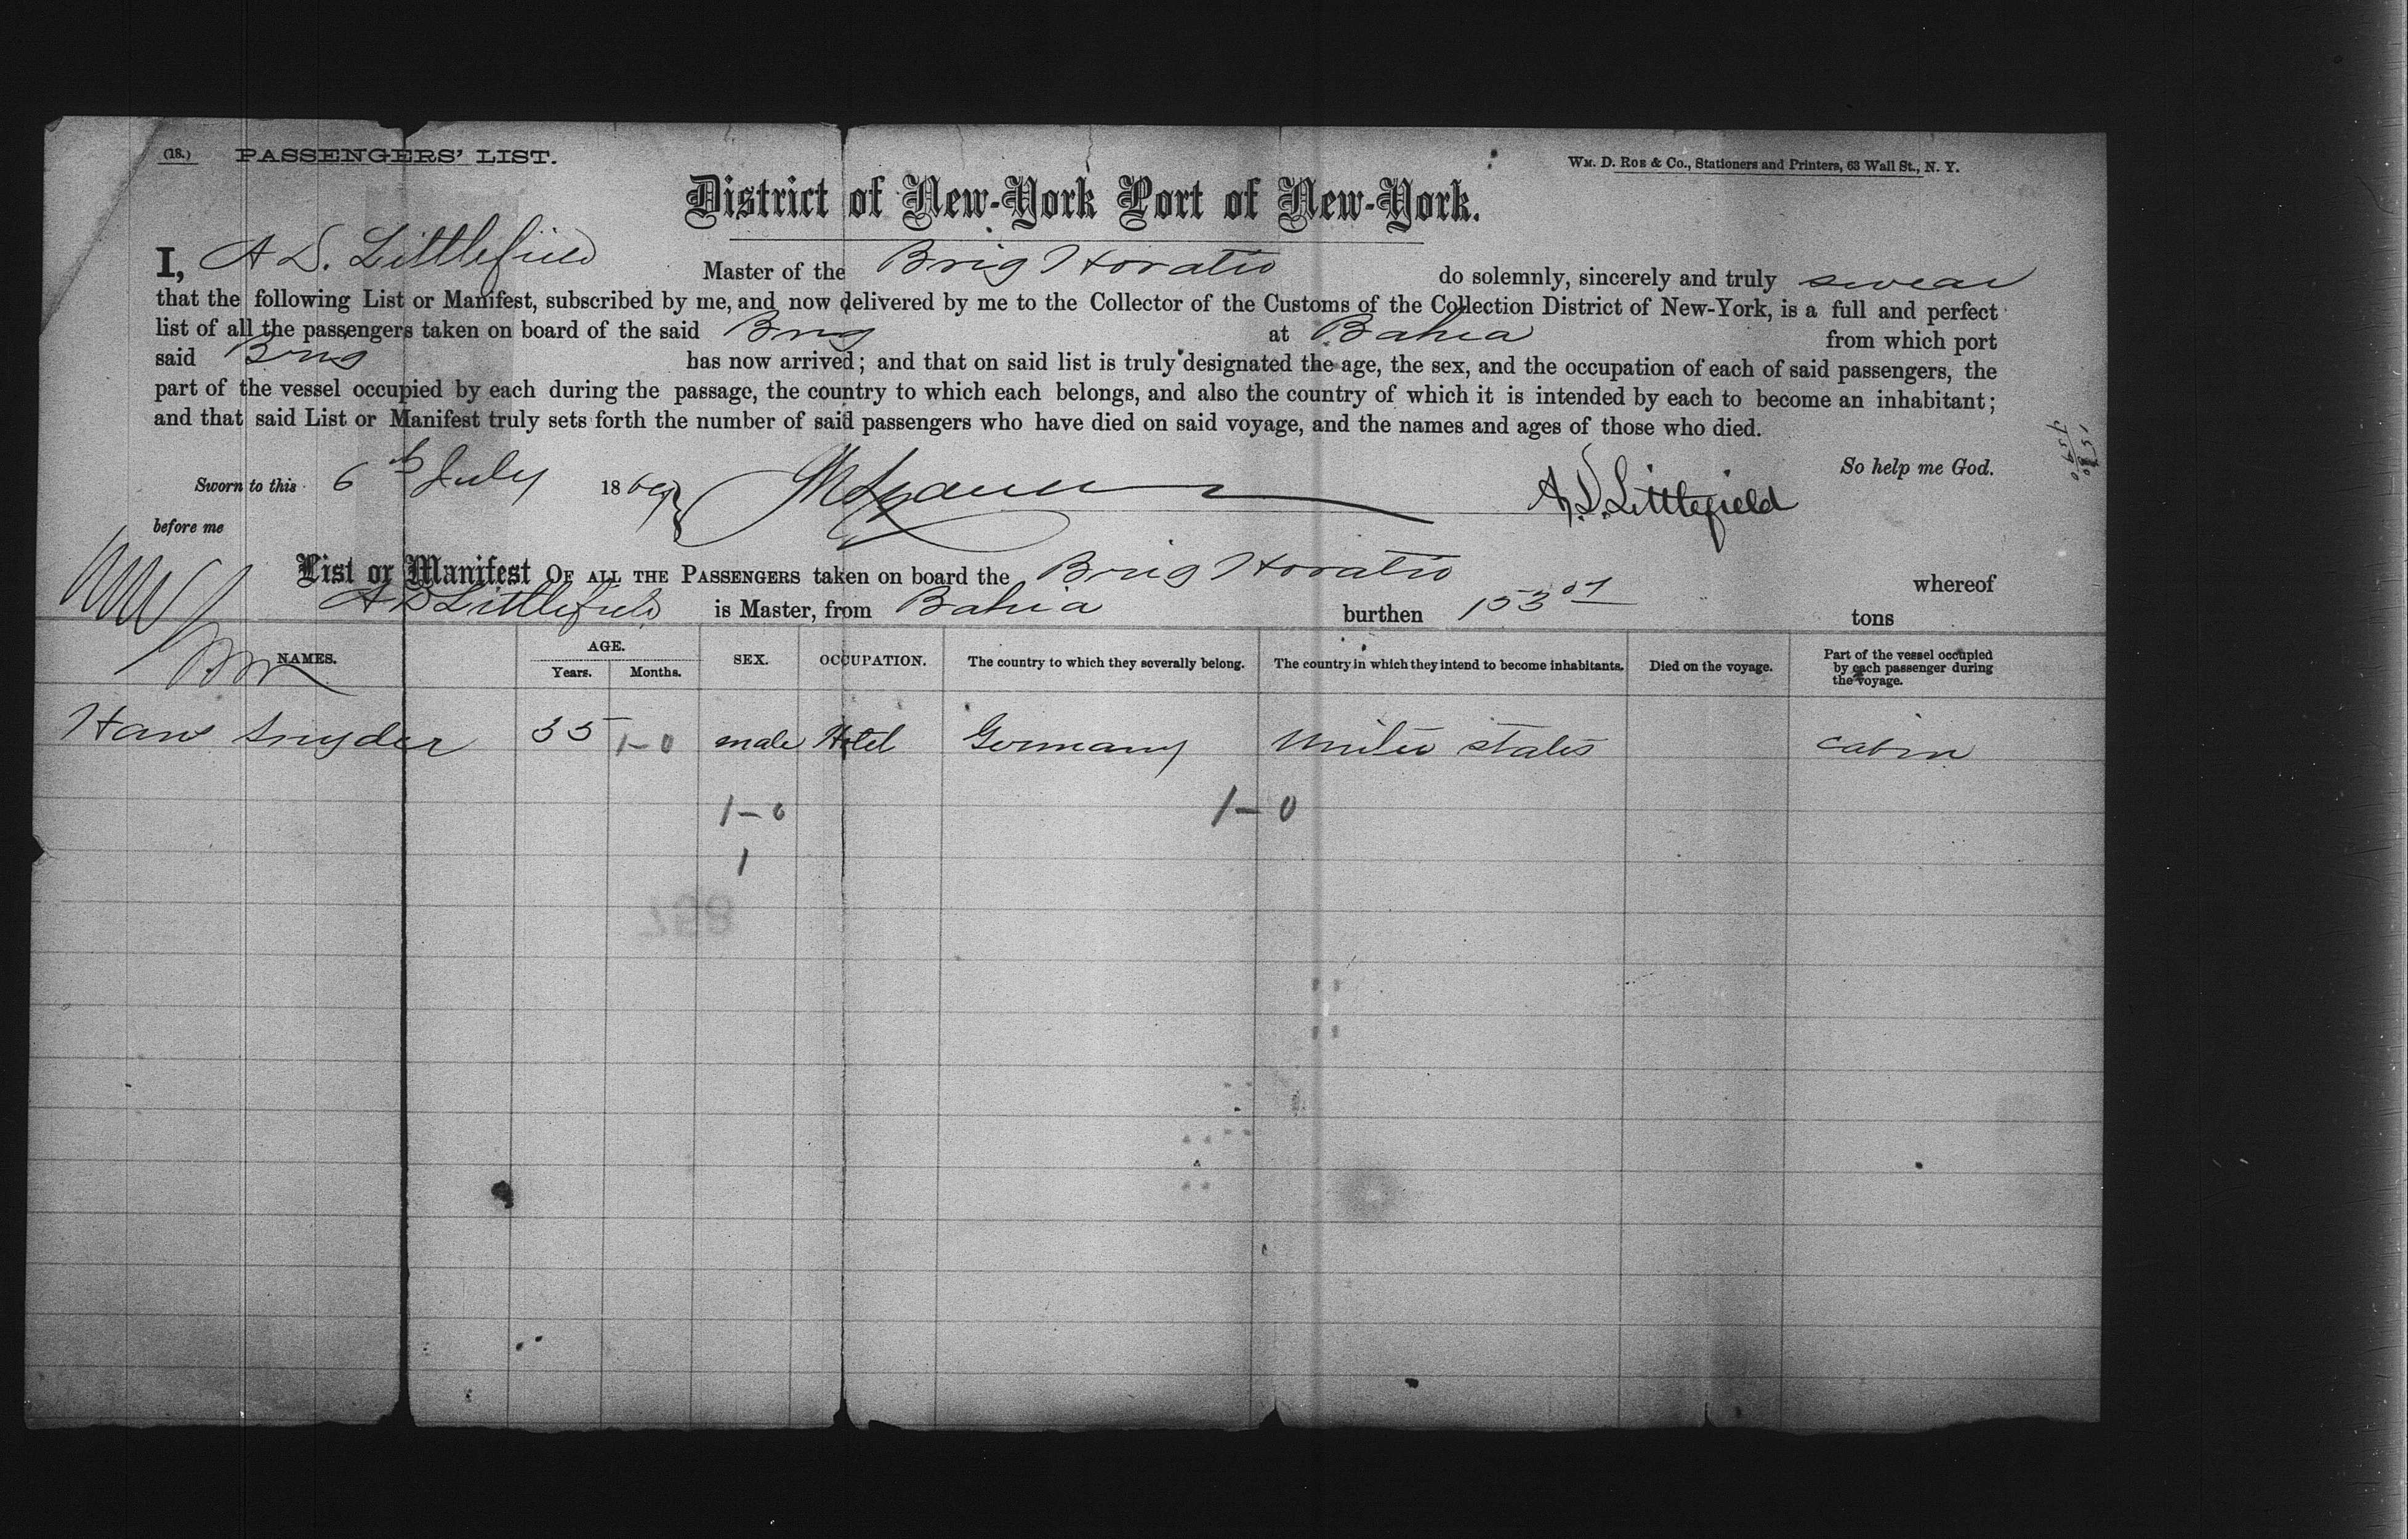 (18.) PASSENGERS' LIST.
WM. D. ROE & Co., Stationers and Printers, 63 Wall St., N. Y.
District of New-York Port of New-York.
I, A D. Littlefield Master of the Brig Horatio do solemnly, sincerely and truly swear
that the following List or Manifest, subscribed by me, and now delivered by me to the Collector of the Customs of the Collection District of New-York, is a full and perfect
list of all the passengers taken on board of the said Brig at Bahia from which port
said Brig has now arrived; and that on said list is truly designated the age, the sex, and the occupation of each of said passengers, the
part of the vessel occupied by each during the passage, the country to which each belongs, and also the country of which it is intended by each to become an inhabitant;
and that said List or Manifest truly sets forth the number of said passengers who have died on said voyage, and the names and ages of those who died.
So help me God.
Sworn to this 6th July 1869 A. D. Littlefield
before me
List or Manifest OF ALL THE PASSENGERS taken on board the Brig Horatio whereof
A D Littlefield is Master, from Bahia burthen 153 07 tons
NAMES. AGE. Years. Months. SEX. OCCUPATION. The country to which they severally belong. The country in which they intend to become inhabitants. Died on the voyage. Part of the vessel occupied by each passenger during the voyage.
Hans Snyder 35 1-0 male Hotel Germany United states cabin
1-0 1-0
1